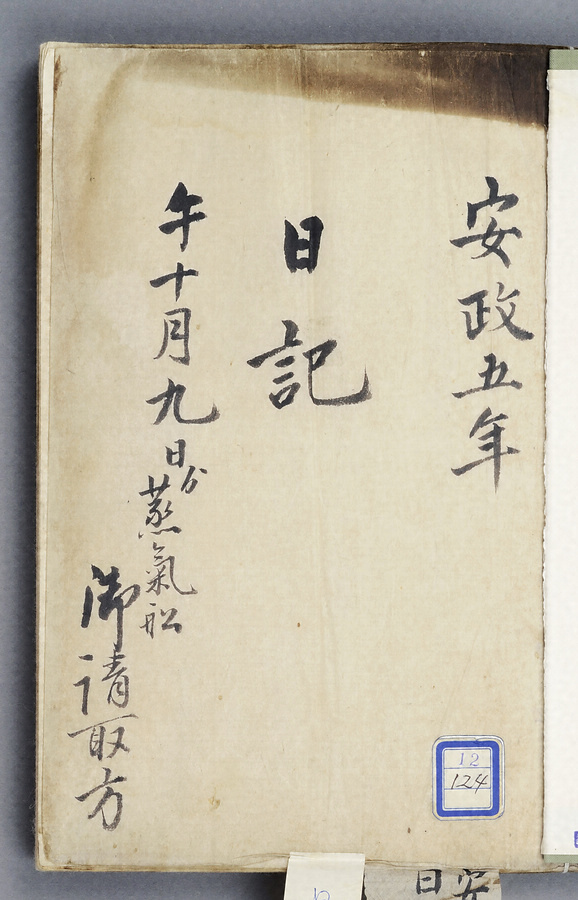 安政五年
日記
午十月九日ゟ蒸氣船
御請取方
12
124
日 安